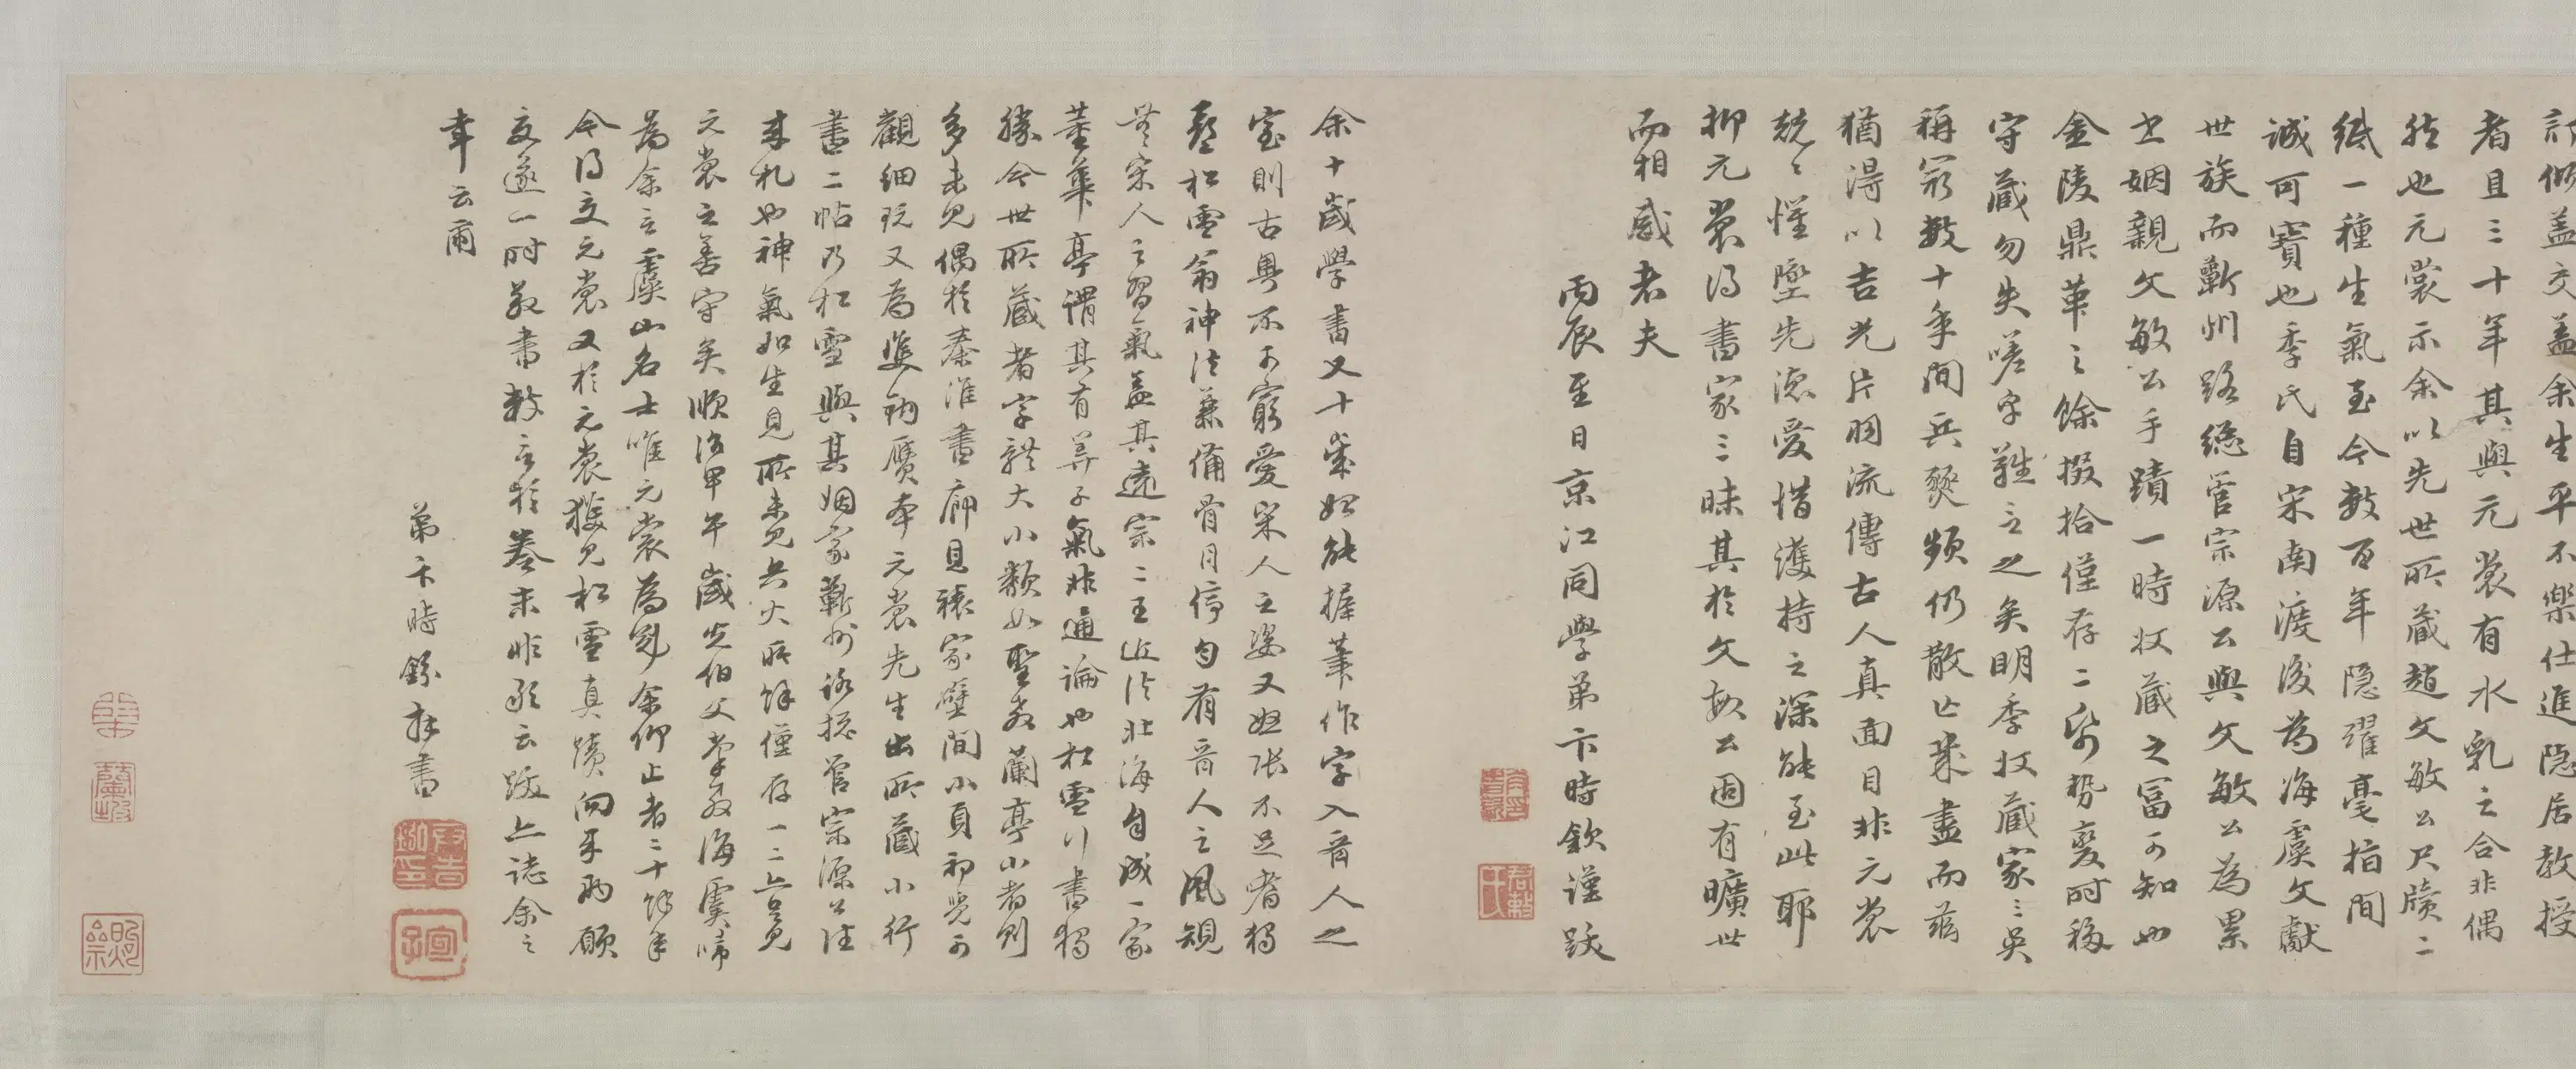 訂傾蓋交蓋余生平不樂仕進隐居教授
者且三十年其與元裳有水乳之合非偶
然也元裳示余以先世所藏趙文敏公尺牘二
紙一種生氣至今數百年隐躍毫楮間
誠可寶也季氏自宋南渡後為海虞文獻
世族而蘄州路緫管宗源公與文敏公為累
世姻親文敏公手蹟一時收藏之富可知也
金陵鼎革之餘掇拾僅存二紙势變時移
守藏勿失嗟乎難言之矣明季收藏家三吳
稱最數十年間兵燹頻仍散亡略盡而茲
猶得以吉光片羽流傳古人真面目非元裳
兢兢惟墜先志愛惜護持之深能至此耶
抑元裳得書家三昧其於文敏公固有曠世
而相感者夫
丙辰至日京江同學弟卞時欽謹跋
余十歲學書又十歲始能握筆作字入晋人之
室則古奧不可窮愛宋人之姿又怒张不足者獨
趙松雪翁神法兼備骨肉停匀有晋人之風規
無宋人之習氣蓋其遠宗二王近法北海自成一家
董華亭謂其有算子氣非通論也松雪行書獨
勝今世所藏者字體大小類如聖教蘭亭小者則
多未見偶於秦淮畫廊見裱家壁間小頁初覺可
觀細玩又為雙鉤贋本元裳先生出所藏小行
書二帖乃松雪與其姻家蘄州路摠管宗源公往
来札也神氣如生見所未見兵火所餘僅存一二亦足見
元裳之善守矣順治甲午歲先伯父掌教海虞歸
為余言虞山名士唯元裳為最余仰止者二十餘年
今得交元裳又於元裳獲見松雪真蹟向来兩願
交遂一時敬書数言於卷末非敢云跋亦誌余之
幸云爾
弟卞時鉉拜書